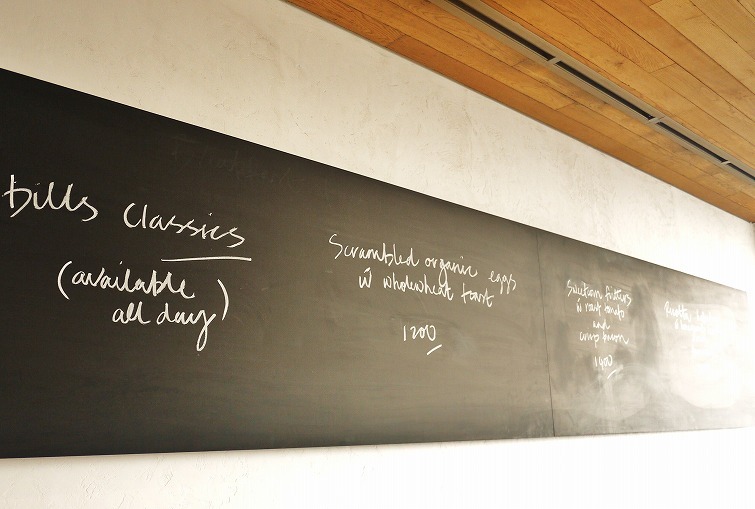 bills classics
(available
all day)
Scrambled organic eggs
w wholewheat toast
1200
Sweetcorn fritters
w roast tomato
and
crisp bacon
1400
Ricotta